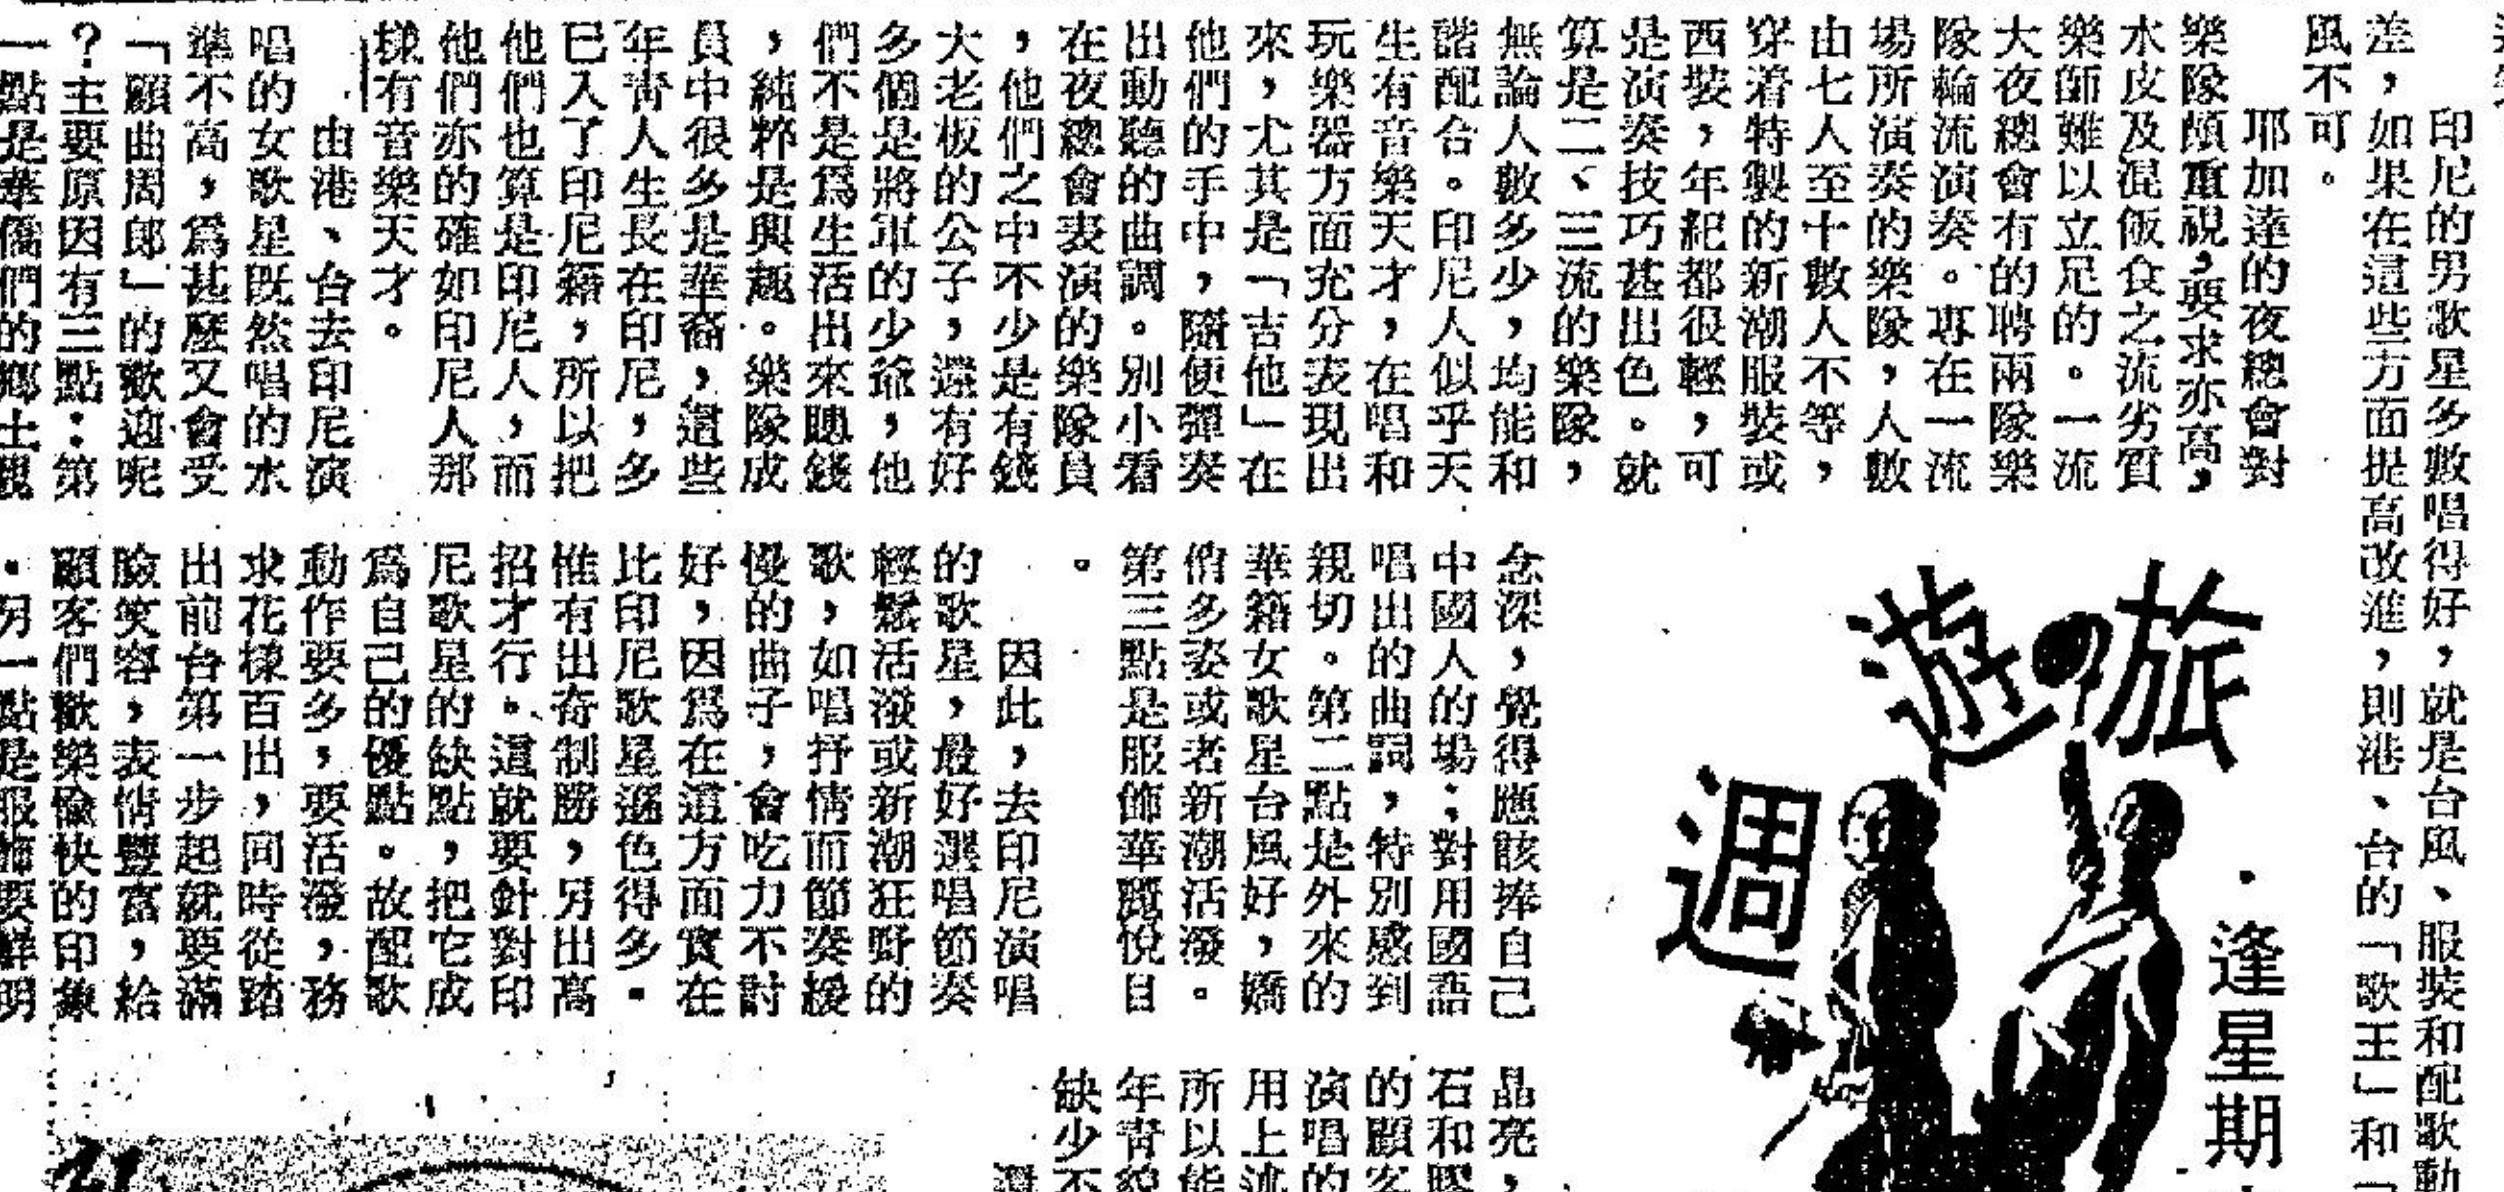 印尼的男歌星多數唱得好，就是台風、服裝和配歌動
差，如果在這些方面提高改進，則港、台的「歌王」和「
風不可。
耶加達的夜總會對
樂隊頗重視，要求亦高，
水皮及混飯食之流劣質
樂師難以立足的。一流
大夜總會有的聘兩隊樂
隊輪流演奏。專在一流
場所演奏的樂隊，人數
由七人至十數人不等，
穿着特製的新潮服裝或
西裝，年紀都很輕，可
是演奏技巧甚出色。就
算是二、三流的樂隊，
無論人數多少，均能和
諧配合。印尼人似乎天
生有音樂天才，在唱和
玩樂器方面充分表現出
來，尤其是「吉他」在
他們的手中，隨便彈奏
出動聽的曲調。別小看
在夜總會表演的樂隊員
，他們之中不少是有錢
大老板的公子，還有好
多個是將軍的少爺，他
們不是爲生活出來賺錢
，純粹是興趣。樂隊成
員中很多是華裔，這些
年青人生長在印尼，多
已入了印尼籍，所以把
他們也算是印尼人，而
他們亦的確如印尼人那
樣有音樂天才。
由港、台去印尼演
唱的女歌星既然唱的水
準不高，爲甚麼又會受
「顧曲周郎」的歡迎呢
？主要原因有三點：第
一點是華僑們的鄉土觀
念深，覺得應該捧自己
中國人的場；對用國語
唱出的曲詞，特別感到
親切。第二點是外來的
華籍女歌星台風好，嬌
俏多姿或者新潮活潑。
第三點是服飾華麗悅目
。
因此，去印尼演唱
的歌星，最好選唱節奏
輕鬆活潑或新潮狂野的
歌，如唱抒情而節奏緩
慢的曲子，會吃力不討
好，因爲在這方面實在
比印尼歌星遜色得多。
惟有出奇制勝，另出高
招才行。這就要針對印
尼歌星的缺點，把它成
爲自己的優點。故配歌
動作要多，要活潑，務
求花樣百出，同時從踏
出前台第一步起就要滿
臉笑容，表情豐富，給
顧客們歡樂愉快的印象
。另一點是服飾要鮮明
晶亮，
石和膠
的顧客
演唱的
用上流
所以能
年青貌
缺少不
還
旅遊
週
・逢星期